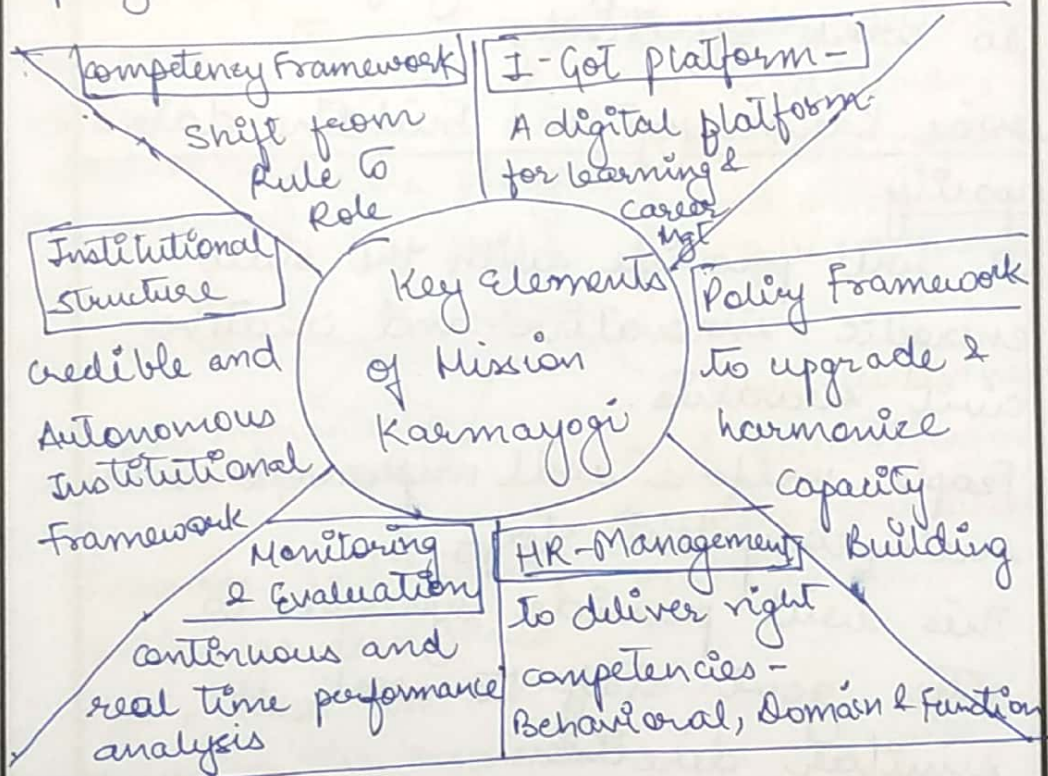 Competency Framework
Shift from
Rule to
Role
I-GoT platform-
A digital platform
for learning &
career
Mgt
Institutional
Structure
credible and
Autonomous
Institutional
Framework
Key Elements
of Mission
Karmayogi
Policy Framework
to upgrade &
harmonize
capacity
Building
Monitoring
& Evaluation
continuous and
real time performance
analysis
HR-Management
to deliver right
competencies-
Behavioral, Domain & Function